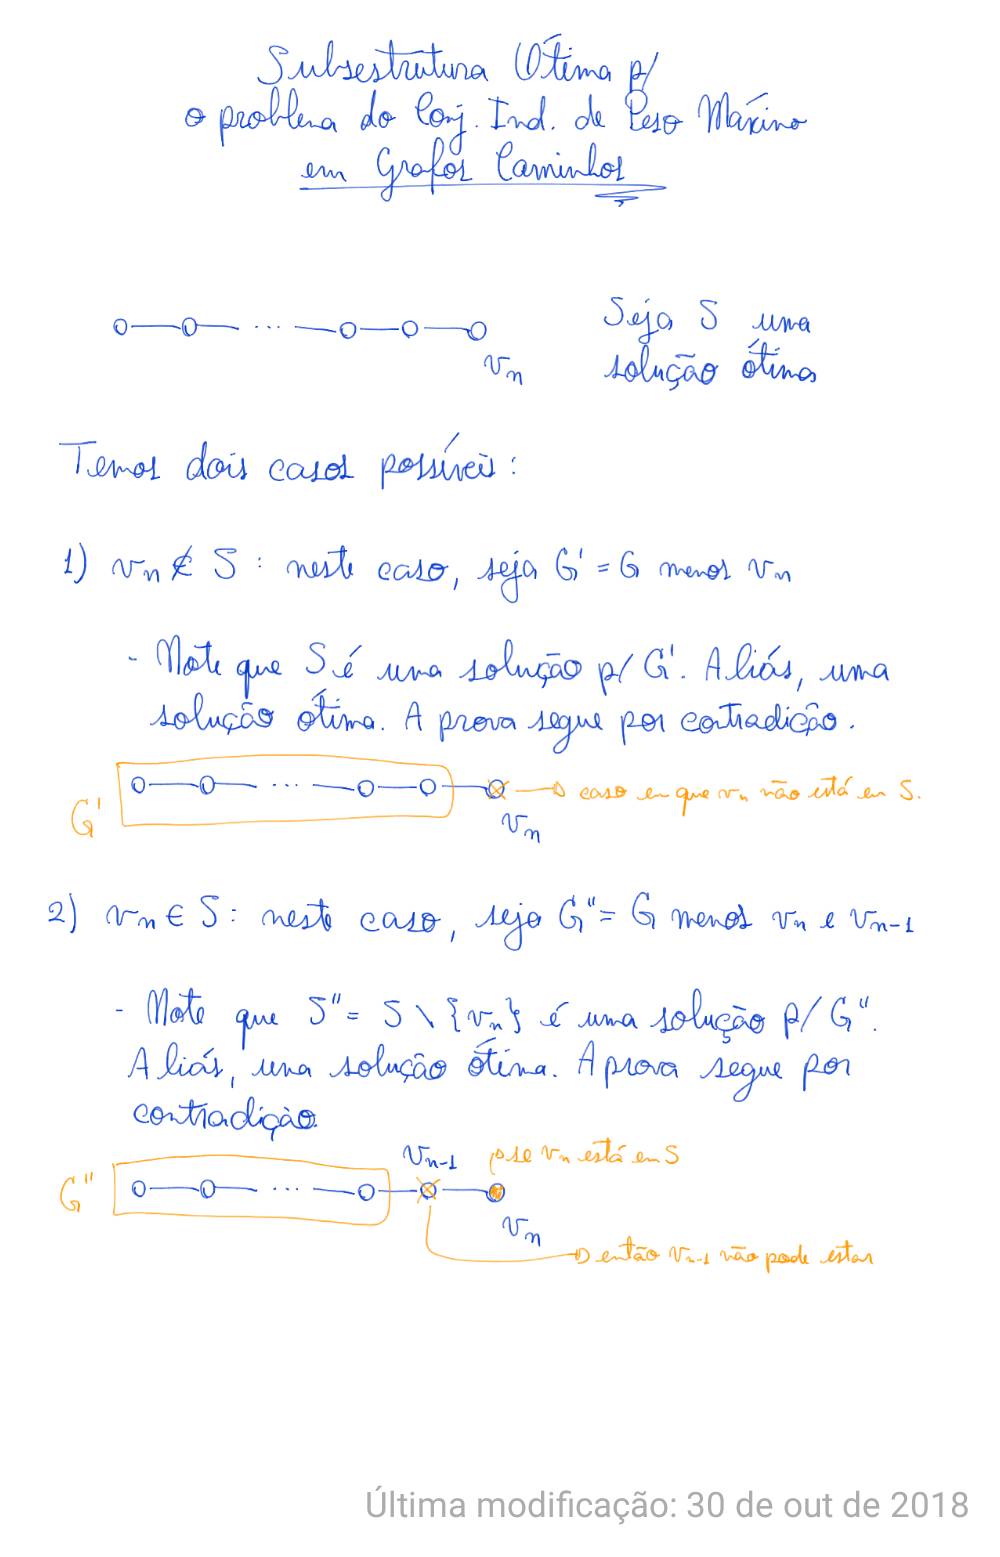 Subsestrutura Ótima p/
o problema do Conj. Ind. de Peso Máximo
em Grafos Caminhos
Seja S uma
solução ótima
v_n
Temos dois casos possíveis:
1) v_n ∉ S : neste caso, seja G' = G menos v_n
- Note que S é uma solução p/ G'. Aliás, uma
solução ótima. A prova segue por contradição.
G'
→ caso em que v_n não está em S.
v_n
2) v_n ∈ S : neste caso, seja G'' = G menos v_n e v_{n-1}
- Note que S'' = S \ {v_n} é uma solução p/ G''.
Aliás, uma solução ótima. A prova segue por
contradição.
v_{n-1} → se v_n está em S
G''
v_n
→ então v_{n-1} não pode estar
Última modificação: 30 de out de 2018